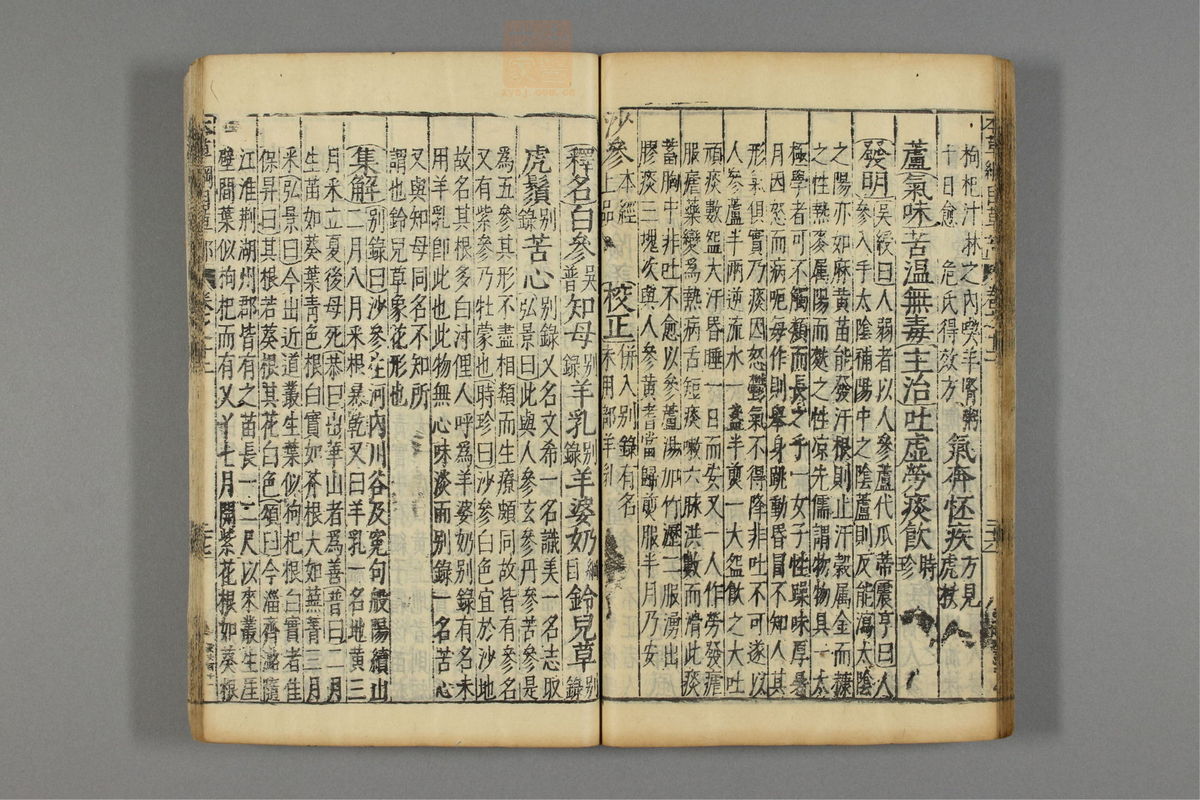 枸杞汁淋之內喫羊腎粥
十日愈 危氏得效方 氣奔怪疾方見虎杖
蘆氣味苦溫無毒主治吐虛勞痰飲時珍
發明吳綬曰人弱者以人參蘆代瓜蒂震亨曰人
參入手太陰補陽中之陰蘆則反能瀉太陰
之陽亦如麻黃苗能發汗根則止汗穀属金而糠
之性熱麥属陽而麩之性凉先儒謂物物具一太
極學者可不觸類而長之乎一女子性躁味厚暑
月因怒而病呃每作則舉身跳動昏冒不知人其
形氣俱實乃痰因怒鬱氣不得降非吐不可遂以
人參蘆半兩逆流水一盞半煎一大盌飲之大吐
頑痰數盌大汗昏睡一日而安又一人作勞發瘧
服瘧藥變爲熱病舌短痰嗽六脉洪數而滑此痰
蓄胸中非吐不愈以參蘆湯加竹瀝二服湧出
膠痰三塊次與人參黃耆當歸煎服半月乃安
沙參本經上品 校正併入别錄有名未用部羊乳
釋名白參吳普知母别錄羊乳别錄羊婆奶綱目鈴兒草别錄
虎鬚别錄苦心别錄又名文希一名識美一名志取
弘景曰此與人參玄參丹參苦參是
為五參其形不盡相類而生療頗同故皆有參名
又有紫參乃牡蒙也時珍曰沙參白色宜於沙地
故名其根多白汁俚人呼爲羊婆奶别錄有名未
用羊乳卽此也此物無心味淡而别錄一名苦心
又與知母同名不知所
謂也鈴兒草象花形也
集解别錄曰沙參生河內川谷及冤句般陽續山
二月八月采根暴乾又曰羊乳一名地黃三
月采立夏後母死恭曰出華山者為善普曰二月
生苗如葵葉靑色根白實如芥根大如蕪菁三月
釆弘景曰今出近道叢生葉似枸杞根白實者佳
保昇曰其根若葵根其花白色頌曰今淄齊潞隨
江淮荆湖州郡皆有之苗長一二尺以來叢生崖
壁間葉似枸杞而有叉丫七月開紫花根如葵根
本草綱目草部 卷之十二